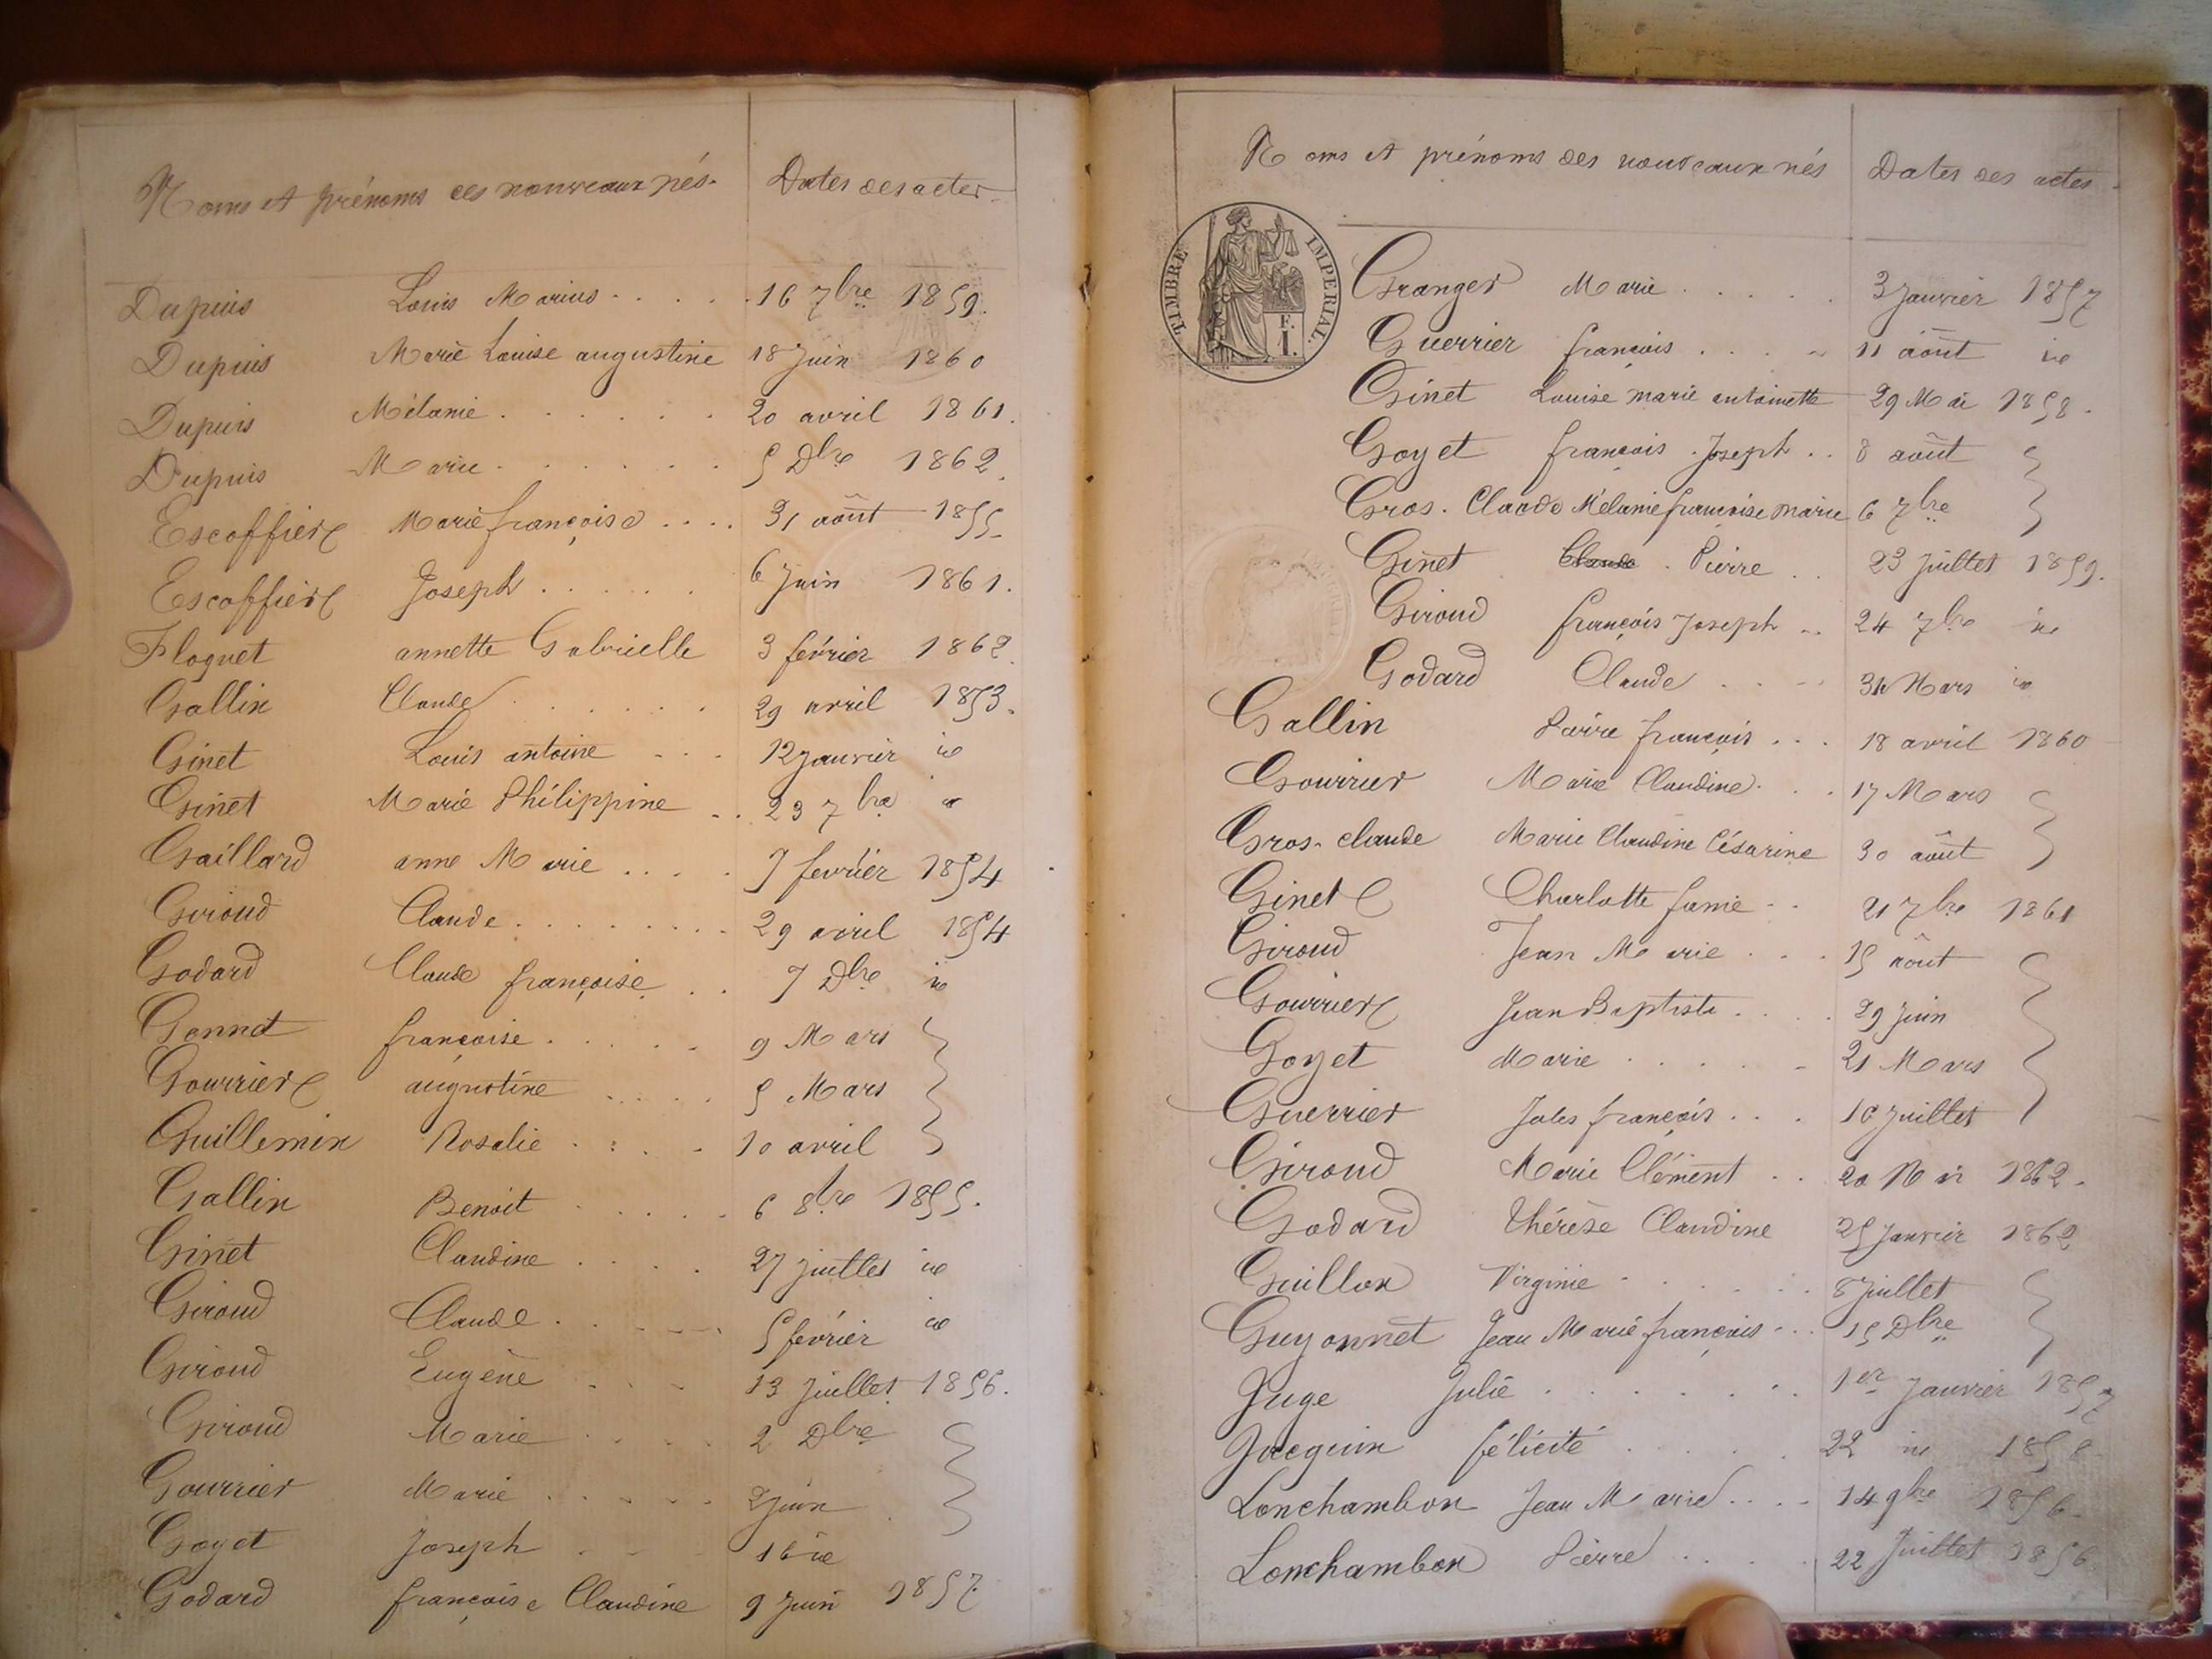 Noms et prénoms des nouveaux nés. Dates des actes
Dupuis Louis Marius 16 7bre 1859.
Dupuis Marie Louise augustine 18 Juin 1860
Dupuis Mélanie 20 avril 1861.
Dupuis Marie 5 Dbre 1862.
Escoffier Marie françoise 31 août 1855
Escoffier Joseph 6 Juin 1861.
Floquet annette Gabrielle 3 février 1862.
Gallin Claude 29 avril 1853.
Ginet Louis antoine 12 Janvier id
Ginet Marie Philippine 23 7bre id
Gaillard anne Marie 7 février 1854
Giroud Claude 29 avril 1854
Godard Claude françoise 7 Dbre id
Gonnet françoise 9 Mars
Gourrier augustine 5 Mars
Guillemin Rosalie 10 avril
Gallin Benoit 6 8bre 1855.
Ginet Claudine 27 juillet id
Giroud Claude 5 février id
Giroud Eugène 13 Juillet 1856.
Giroud Marie 2 Dbre
Gourrier Marie 2 juin
Goyet Joseph 16 id
Godard françoise Claudine 9 Juin 1857
Noms et prénoms des nouveaux nés Dates des actes
TIMBRE IMPERIAL.
E. 1.
Granger Marie 3 Janvier 1857
Guerrier françois 11 août id
Ginet Louise marie antoinette 29 Mai 1858.
Goyet françois Joseph 8 août
Gros. Claude Mélanie françoise marie 6 7bre
Ginet Claude . Pierre 23 Juillet 1859.
Giroud françois Joseph 24 7bre id
Godard Claude 31 Mars id
Gallin Pierre françois 18 avril 1860
Gourrier Marie Claudine 17 Mars
Gros-claude Marie Claudine Césarine 30 août
Ginet Charlotte fanie 21 7bre 1861
Giroud Jean Marie 15 août
Gourrier Jean Baptiste 29 juin
Goyet Marie 21 Mars
Guerrier Jules françois 10 juillet
Giroud Marie Clément 20 Mai 1862.
Godard Thérèse Claudine 25 Janvier 1862
Guillon Virginie 8 Juillet
Guyonnet Jean Marie françois 15 Dbre
Juge Julie 1er Janvier 1857
Jacquin félicité 22 id 1858
Lonchambon Jean Marie 14 9bre 1856.
Lonchambon Pierre 22 Juillet 1856.